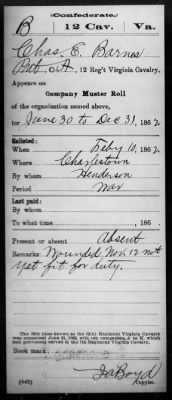 (Confederate.)
B 12 Cav. Va.
Chas. E. Barnes
Pvt Co. A, 12 Reg't Virginia Cavalry.
Appears on
Company Muster Roll
of the organization named above,
for June 30 to Dec 31, 1862
Enlisted:
When Feby 10, 1862
Where Charlestown
By whom Henderson
Period War
Last paid:
By whom
To what time , 186 .
Present or absent Absent
Remarks: Wounded Nov. 12 not
yet fit for duty.
Book mark:
(642) Copyist.